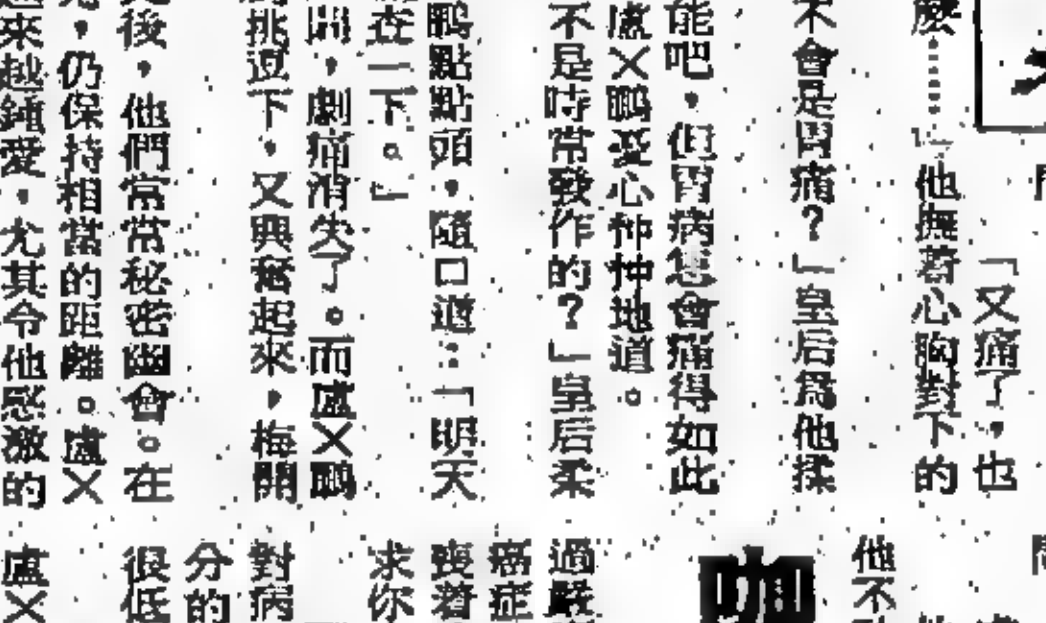 「又痛了,也
麼……
他撫著心胸對下的
不會是胃痛?」皇后為他揉
能吧,但胃病您會痛得如此
盧×鵬憂心忡忡地道。
不是時常發作的?」皇后柔
鵬點點頭,隨口道:「明天
查一下。」
開,劇痛消失了。而盧×鵬
挑逗下,又興奮起來,梅開
後,他們常常秘密幽會。在
,仍保持相當的距離。盧×
來越鍾愛,尤其令他感激的
他不
咖
過嚴
癌症
喪着
求你
對病
分的
很低
盧×